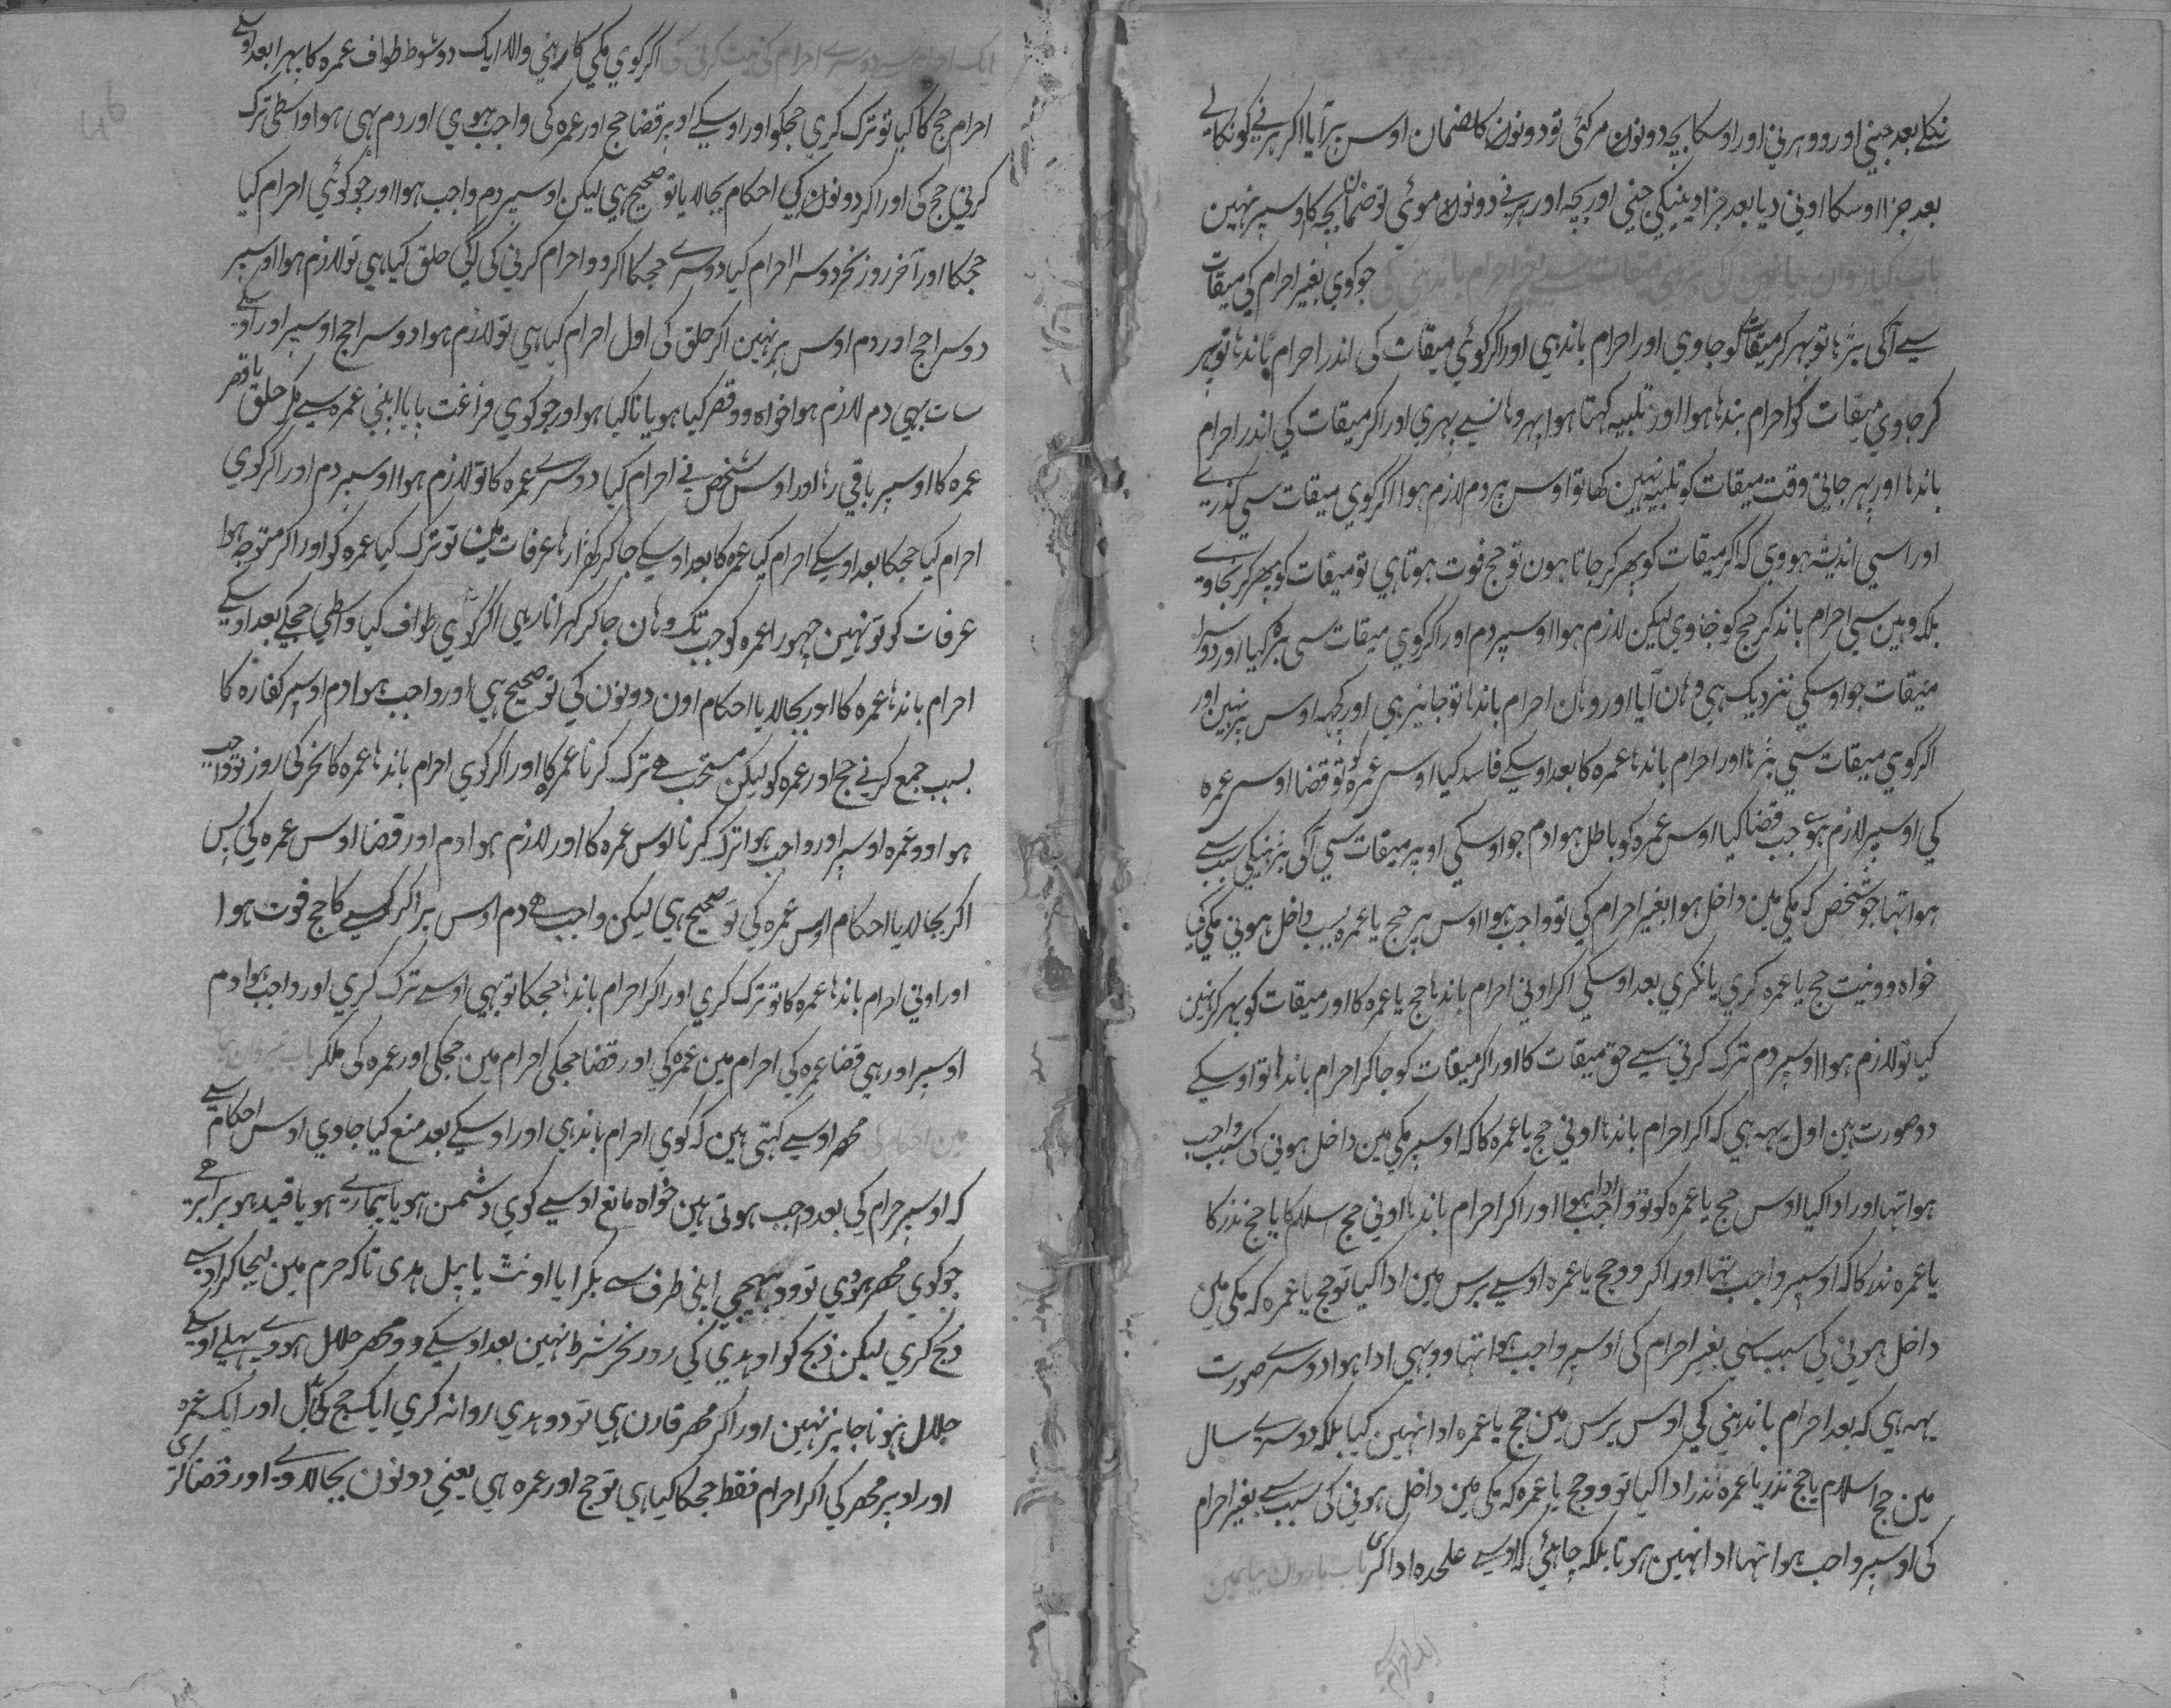 نکلے بعد جنی اور وو ہرنی اور اوسکا بچہ دونون مرگئی تو دونون کا ضمان اوس پر آیا اگر ہرنے کو نکالے
بعد جزا اوسکا اونی دیا بعد جزا دینیکی جنی اور بچہ اور ہرنے دونون موئی تو ضمان بچہ کا اوسپر نہین
باب کیاروان بیا میقات سے بغیر احرام باندنی کی جو کوی بغیر احرام کی میقات
سے آکی بڑہا تو پہر کر میقات کو جاوی اور احرام باندہی اور اگر کوئی میقات کی اندر احرام باندہا تو پہر
کر جاوی میقات کو احرام بندہا ہوا اور تلبیہ کہتا ہوا پہر وہانسے پہری اور اگر میقات کی اندر احرام
باندہا اور پہر جاتی وقت میقات کو تلبیہ نہین کہا تو اوس پر دم لازم ہوا اگر کوی میقات سی گذرے
اور اسی اندیشہ ہووی کہ اگر میقات کو پھر کر جاتا ہون تو حج فوت ہوتا ہی تو میقات کو پھر کر نجاوے
بلکہ وہین سی احرام باند کر حج کو جاوی لیکن لازم ہوا اوسپر دم اور اگر کوی میقات سی بڑہ کیا اور دوسرا
میقات جو اوسکی نزدیک ہی وہان آیا اور وہان احرام باندہا تو جایز ہی اور کچہہ اوس پر نہین اور
اگر کوی میقات سی بڑہا اور احرام باندہا عمرہ کا بعد اوسکے فاسد کیا اوس عمرہ کو تو قضا اوس عمرہ
کی اوسپر لازم ہوے جب قضا کیا اوس عمرہ کو باطل ہوا دم جو اوسکی اوپر میقات سی آکی بڑہنیکی سبب سے
ہوا تہا جو شخص کو مکی مین داخل ہوا بغیر احرام کی تو واجب ہوا اوس پر حج یا عمرہ بسبب داخل ہونی مکی کی
خواہ وو نیت حج یا عمرہ کری یا نکری بعد اوسکی اگر اونی احرام باندہا حج یا عمرہ کا اور میقات کو پہر کر نہین
کیا تو لازم ہوا اوسپر دم ترک کرنی سے حق میقات کا اور اگر میقات کو جا کر احرام باندہا تو اوسکے
دو صورت ہین اول یہہ ہی کہ اگر احرام باندہا اونی حج یا عمرہ کا کہ اوسپر مکی مین داخل ہونی کی سبب واجب
ہوا تہا اور ادا کیا اوس حج یا عمرہ کو تو واجب ادا ہوا اور اگر احرام باندہا اونی حج اسلام کا یا حج نذر کا
یا عمرہ نذر کا کہ اوسپر واجب تہا اور اگر وو حج یا عمرہ اوسے برس مین ادا کیا تو حج یا عمرہ کہ مکی مین
داخل ہونی کی سبب سی بغیر احرام کی اوسپر واجب ہوا تہا وو بہی ادا ہوا دوسرے صورت
یہہ ہی کہ بعد احرام باندہنی کی اوس برس مین حج یا عمرہ ادا نہین کیا بلکہ دوسرے سال
مین حج اسلام یا حج نذر یا عمرہ نذر ادا کیا تو وو حج یا عمرہ کہ مکی مین داخل ہونی کی سبب سے بغیر احرام
کی اوسپر واجب ہوا تہا ادا نہین ہوتا بلکہ چاہئی کہ اوسے علحدہ ادا کری باب باروان بیانمین
ایک احرام سے دوسرے احرام کی نیت کرنی کی اگر کوی مکی کا رہنی والا ایک دو شوط طواف عمرہ کا پہرا بعد اوسکے
احرام حج کا کیا تو ترک کری حجکو اور اوسکے اوپر قضا حج اور عمرہ کی واجب ہووی اور دم بہی ہوا واسطی ترک
کرنی حج کی اور اگر دونون کی احکام بجالایا تو صحیح ہی لیکن اوسپر دم واجب ہوا اور جو کوئی احرام کیا
حجکا اور آخر روز نحر دوسرا احرام کیا دوسرے حجکا اگر وو احرام کرنی کی آگی حلق کیا ہی تو لازم ہوا اوسپر
دوسرا حج اور دم اوس پر نہین اگر حلق کی اول احرام کیا ہی تو لازم ہوا دوسرا حج اوسپر اور اوسکے
سات بہی دم لازم ہوا خواہ وو قصر کیا ہو یا نا کیا ہو اور جو کوی فراغت پایا اپنی عمرہ سے مگر حلق یا قصر
عمرہ کا اوسپر باقی رہا اور اوس شخص نے احرام کیا دوسرے عمرہ کا تو لازم ہوا اوسپر دم اور اگر کوی
احرام کیا حجکا بعد اوسکے احرام کیا عمرہ کا بعد اوسکے جا کر کھڑا رہا عرفات مین تو ترک کیا عمرہ کو اور اگر متوجہ ہوا
عرفات کو تو نہین چہورا عمرہ کو جب تک وہان جا کر کہرا نا رہی اگر کوی طواف کیا واسطی حجکے بعد اوسکے
احرام باندہا عمرہ کا اور بجالایا احکام اون دونون کی تو صحیح ہی اور واجب ہوا دم اوسپر کفارہ کا
بسبب جمع کرنے حج اور عمرہ کو لیکن مستحب ہے ترک کرنا عمرہ کا اور اگر کوی احرام باندہا عمرہ کا نحر کی روز تو واجب
ہوا وو عمرہ اوسپر اور واجب ہوا ترک کرنا اوس عمرہ کا اور لازم ہوا دم اور قضا اوس عمرہ کی پس
اگر بجالایا احکام اوس عمرہ کی تو صحیح ہی لیکن واجب ہے دم اوس پر اگر کسے کا حج فوت ہوا
اور اونی احرام باندہا عمرہ کا تو ترک کری اور اگر احرام باندہا حجکا تو بہی اوسے ترک کری اور واجب ہوا دم
اوسپر اور ہی قضا عمرہ کی احرام مین عمرہ کی اور قضا حجکی احرام مین حجکی اور عمرہ کی ملکر باب تیروان بیا
مین احصار کی محصر اوسے کہتی ہین کہ کوی احرام باندہی اور اوسکے بعد منع کیا جاوی اوس احکام سے
کہ اوسپر احرام کی بعد واجب ہوتی ہین خواہ مانع اوسے کوی دشمن ہو یا بیمارے ہو یا قید ہو برابر ہے
جو کوی محصر ہووی تو وو بہیجی اپنی طرف سے بکرا یا اونٹ یا بیل ہدی تا کہ حرم مین لیجا کر اوسے
ذبح کری لیکن ذبح کو او ہدی کی روز نحر شرط نہین بعد اوسکے وو محصر حلال ہووے پہلے اوسکے
حلال ہونا جایز نہین اور اگر محصر قارن ہی تو دو ہدی روانہ کری ایک حج کی بدل اور ایک عمرہ
اور اوپر محصر کی اگر احرام فقط حجکا کیا ہی تو حج اور عمرہ ہی یعنی دونون بجالاوے اور قضا کری